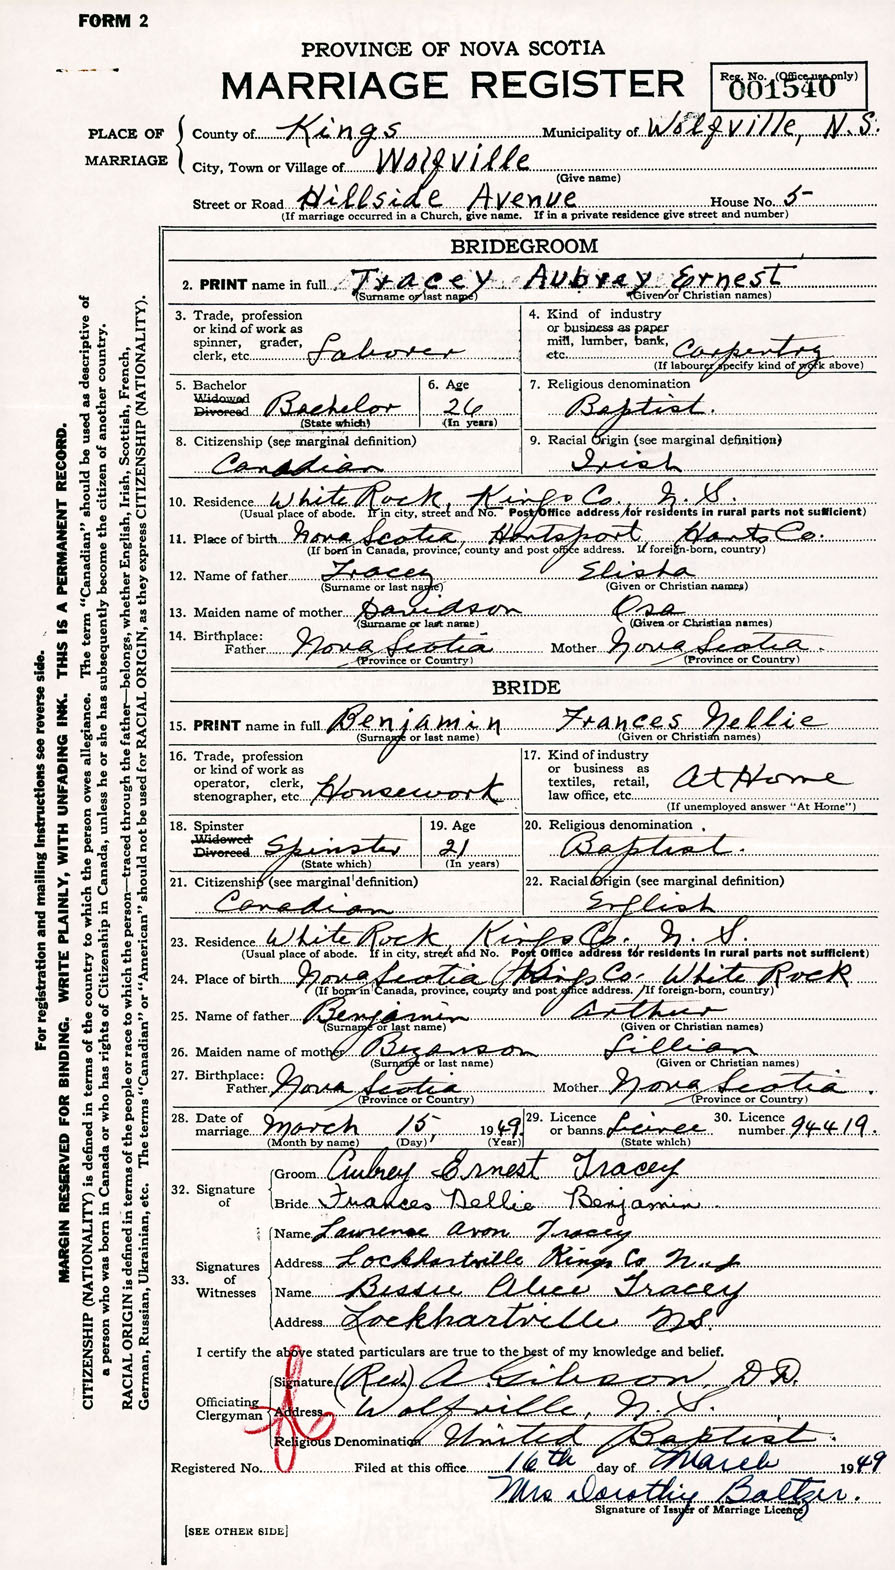 FORM 2
PROVINCE OF NOVA SCOTIA
MARRIAGE REGISTER
Reg. No. (Office use only)
001540
PLACE OF MARRIAGE
County of Kings Municipality of Wolfville, N.S.
City, Town or Village of Wolfville
(Give name)
Street or Road Hillside Avenue House No. 5
(If marriage occurred in a Church, give name. If in a private residence give street and number)
BRIDEGROOM
2. PRINT name in full Tracey Aubrey Ernest
(Surname or last name) (Given or Christian names)
3. Trade, profession or kind of work as spinner, grader, clerk, etc. Laborer
4. Kind of industry or business as paper mill, lumber, bank, etc. Carpentry
(If labourer specify kind of work above)
5. Bachelor Widowed Divorced Bachelor
(State which)
6. Age 26
(In years)
7. Religious denomination
Baptist.
8. Citizenship (see marginal definition)
Canadian
9. Racial Origin (see marginal definition)
Irish
10. Residence White Rock, Kings Co., N. S.
(Usual place of abode. If in city, street and No. Post Office address for residents in rural parts not sufficient)
11. Place of birth Nova Scotia, Hantsport, Hants Co.
(If born in Canada, province, county and post office address. If foreign-born, country)
12. Name of father Tracey Elisha
(Surname or last name) (Given or Christian names)
13. Maiden name of mother Davidson Osa
(Surname or last name) (Given or Christian names)
14. Birthplace: Father Nova Scotia Mother Nova Scotia.
(Province or Country) (Province or Country)
BRIDE
15. PRINT name in full Benjamin Frances Nellie
(Surname or last name) (Given or Christian names)
16. Trade, profession or kind of work as operator, clerk, stenographer, etc. Housework
17. Kind of industry or business as textiles, retail, law office, etc. At Home
(If unemployed answer "At Home")
18. Spinster Widowed Divorced Spinster
(State which)
19. Age 21
(In years)
20. Religious denomination
Baptist.
21. Citizenship (see marginal definition)
Canadian
22. Racial Origin (see marginal definition)
English
23. Residence White Rock, Kings Co. N. S.
(Usual place of abode. If in city, street and No. Post Office address for residents in rural parts not sufficient)
24. Place of birth Nova Scotia Kings Co. White Rock
(If born in Canada, province, county and post office address. If foreign-born, country)
25. Name of father Benjamin Arthur
(Surname or last name) (Given or Christian names)
26. Maiden name of mother Bezanson Lillian
(Surname or last name) (Given or Christian names)
27. Birthplace: Father Nova Scotia Mother Nova Scotia.
(Province or Country) (Province or Country)
28. Date of marriage March 15, 1949
(Month by name) (Day) (Year)
29. Licence or banns
(State which)
30. Licence number 94419.
32. Signature of
Groom Aubrey Ernest Tracey
Bride Frances Nellie Benjamin.
33. Signatures of Witnesses
Name Lawrence Avon Tracey
Address Lockhartville Kings Co N.S
Name Bessie Alice Tracey
Address Lockhartville NS.
I certify the above stated particulars are true to the best of my knowledge and belief.
Officiating Clergyman
Signature (Rev.) A Gibson, D.D.
Address Wolfville, N. S.
Religious Denomination United Baptist.
Registered No. Filed at this office 16th day of March 1949
Mrs Dorothy Baltzer.
Signature of Issuer of Marriage Licence
[SEE OTHER SIDE]
For registration and mailing Instructions see reverse side.
MARGIN RESERVED FOR BINDING. WRITE PLAINLY, WITH UNFADING INK. THIS IS A PERMANENT RECORD.
CITIZENSHIP (NATIONALITY) is defined in terms of the country to which the person owes allegiance. The term "Canadian" should be used as descriptive of
a person who was born in Canada or who has rights of Citizenship in Canada, unless he or she has subsequently become the citizen of another country.
RACIAL ORIGIN is defined in terms of the people or race to which the person—traced through the father—belongs, whether English, Irish, Scottish, French,
German, Russian, Ukrainian, etc. The terms "Canadian" or "American" should not be used for RACIAL ORIGIN, as they express CITIZENSHIP (NATIONALITY).